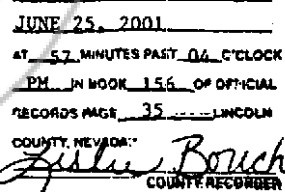 JUNE 25, 2001
AT 57 MINUTES PAST 04 O'CLOCK
PM IN BOOK 156 OF OFFICIAL
RECORDS PAGE 35 LINCOLN
COUNTY, NEVADA.
Leslie Boucher
COUNTY RECORDER